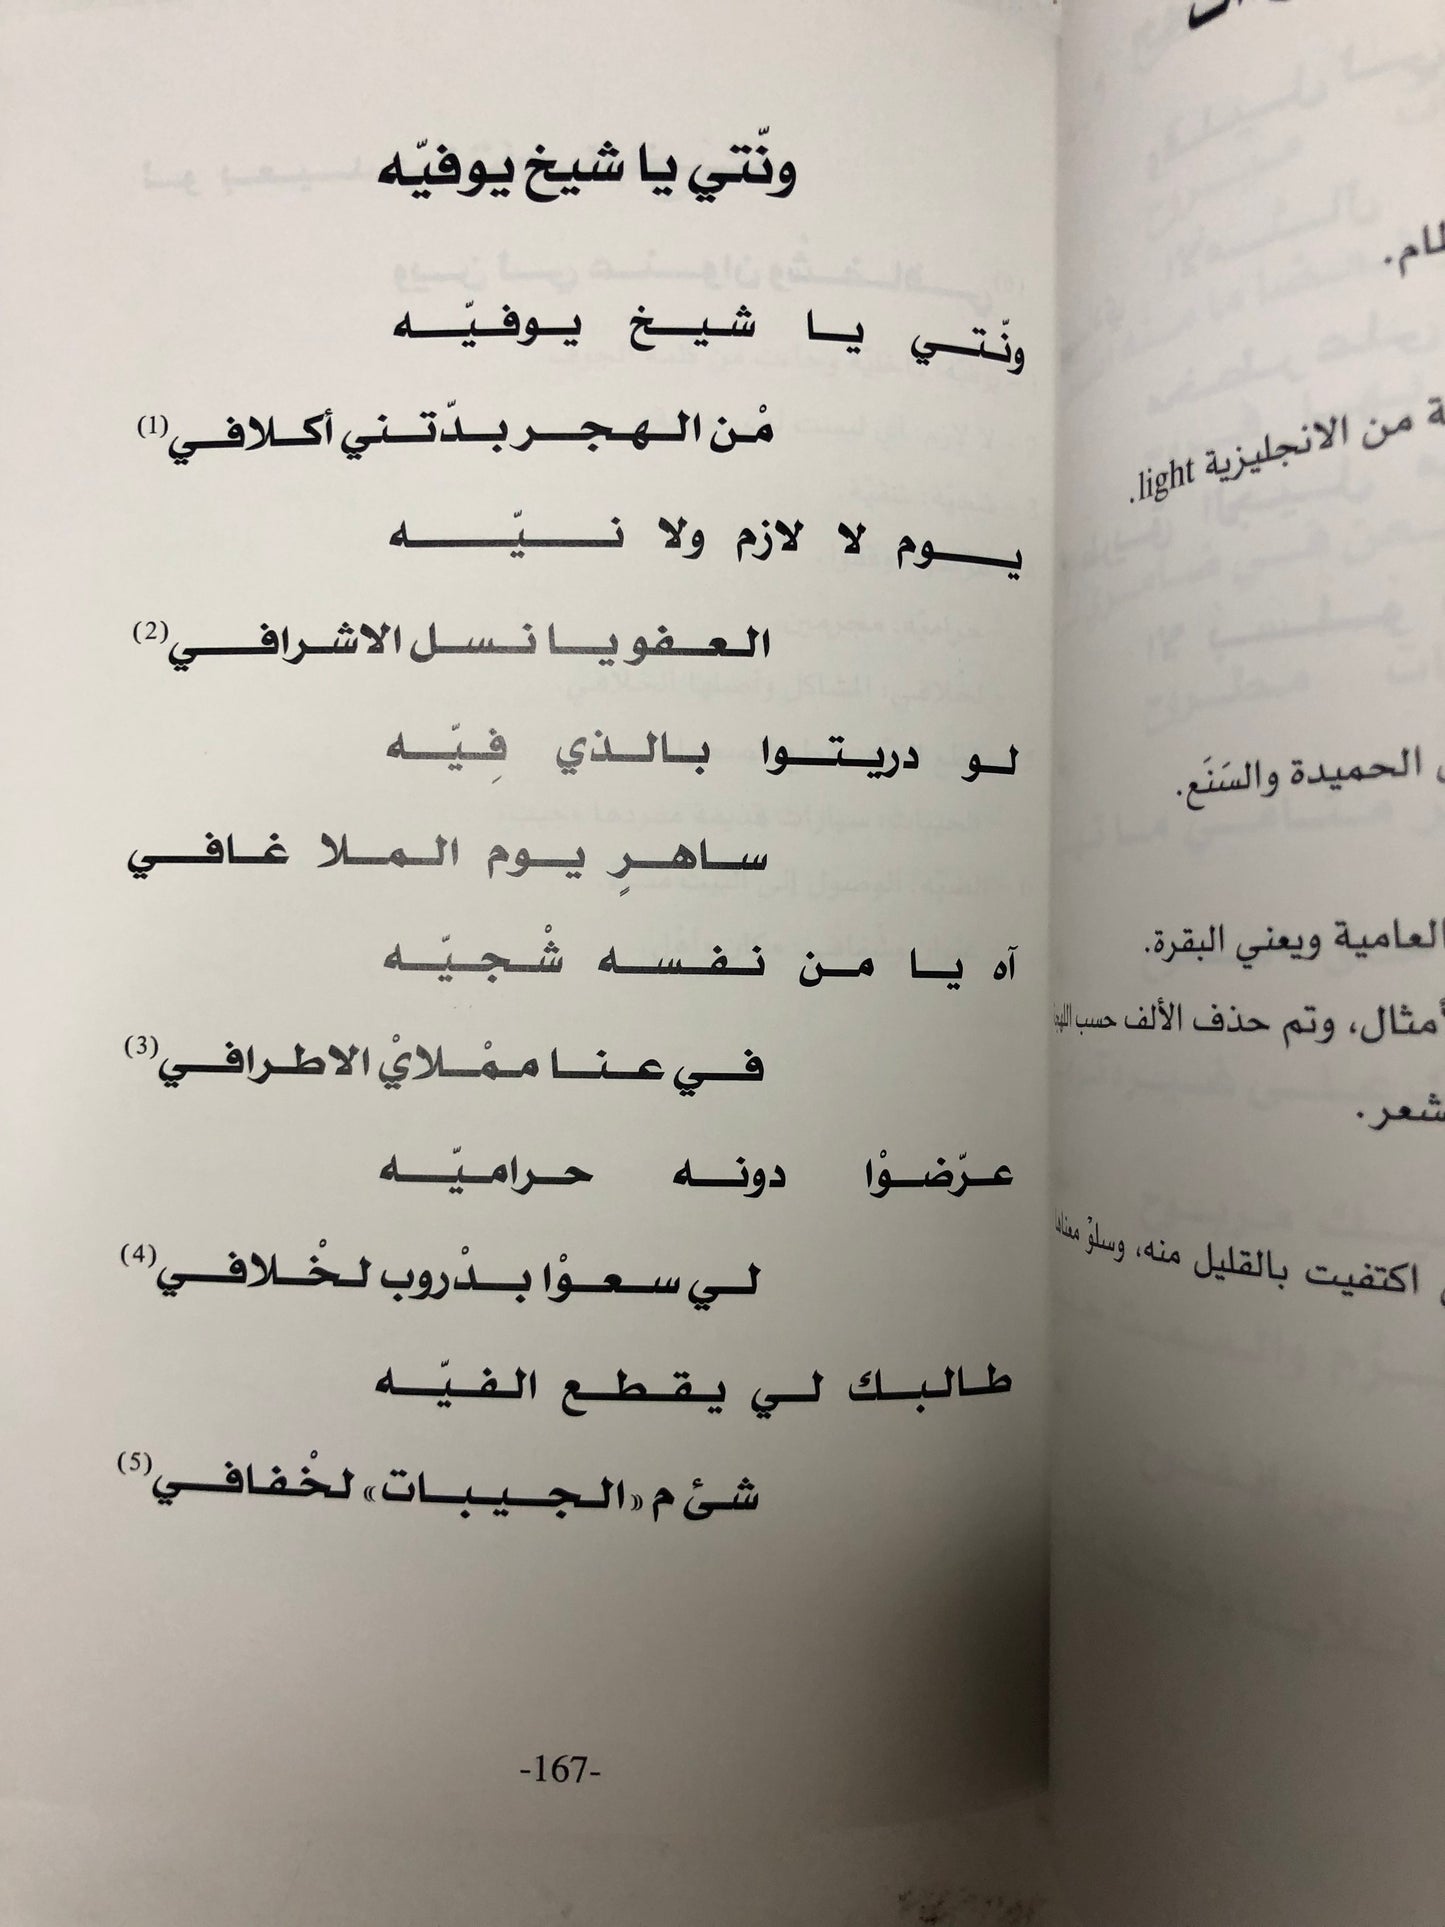 ونّتي يا شيخ يوفيّه
ونّتي يا شيخ يوفيّه
مْن الهجر بدّتني أكلافي(1)
يوم لا لازم ولا نيّه
العفو يا نسل الاشرافي(2)
لو دريتوا بالذي فِيّه
ساهرٍ يوم الملا غافي
آه يا من نفسه شْجيّه
في عنا ممْلايْ الاطرافي(3)
عرّضوْا دونه حراميّه
لي سعوْا بدْروب لخْلافي(4)
طالبك لي يقطع الفيّه
شئ م «الجيبات» لخْفافي(5)
-167-
ظام.
ة من الانجليزية light.
الحميدة والسَنَع.
العامية ويعني البقرة.
أمثال، وتم حذف الألف حسب اللهجة
شعر.
اكتفيت بالقليل منه، وسلوْ معناها